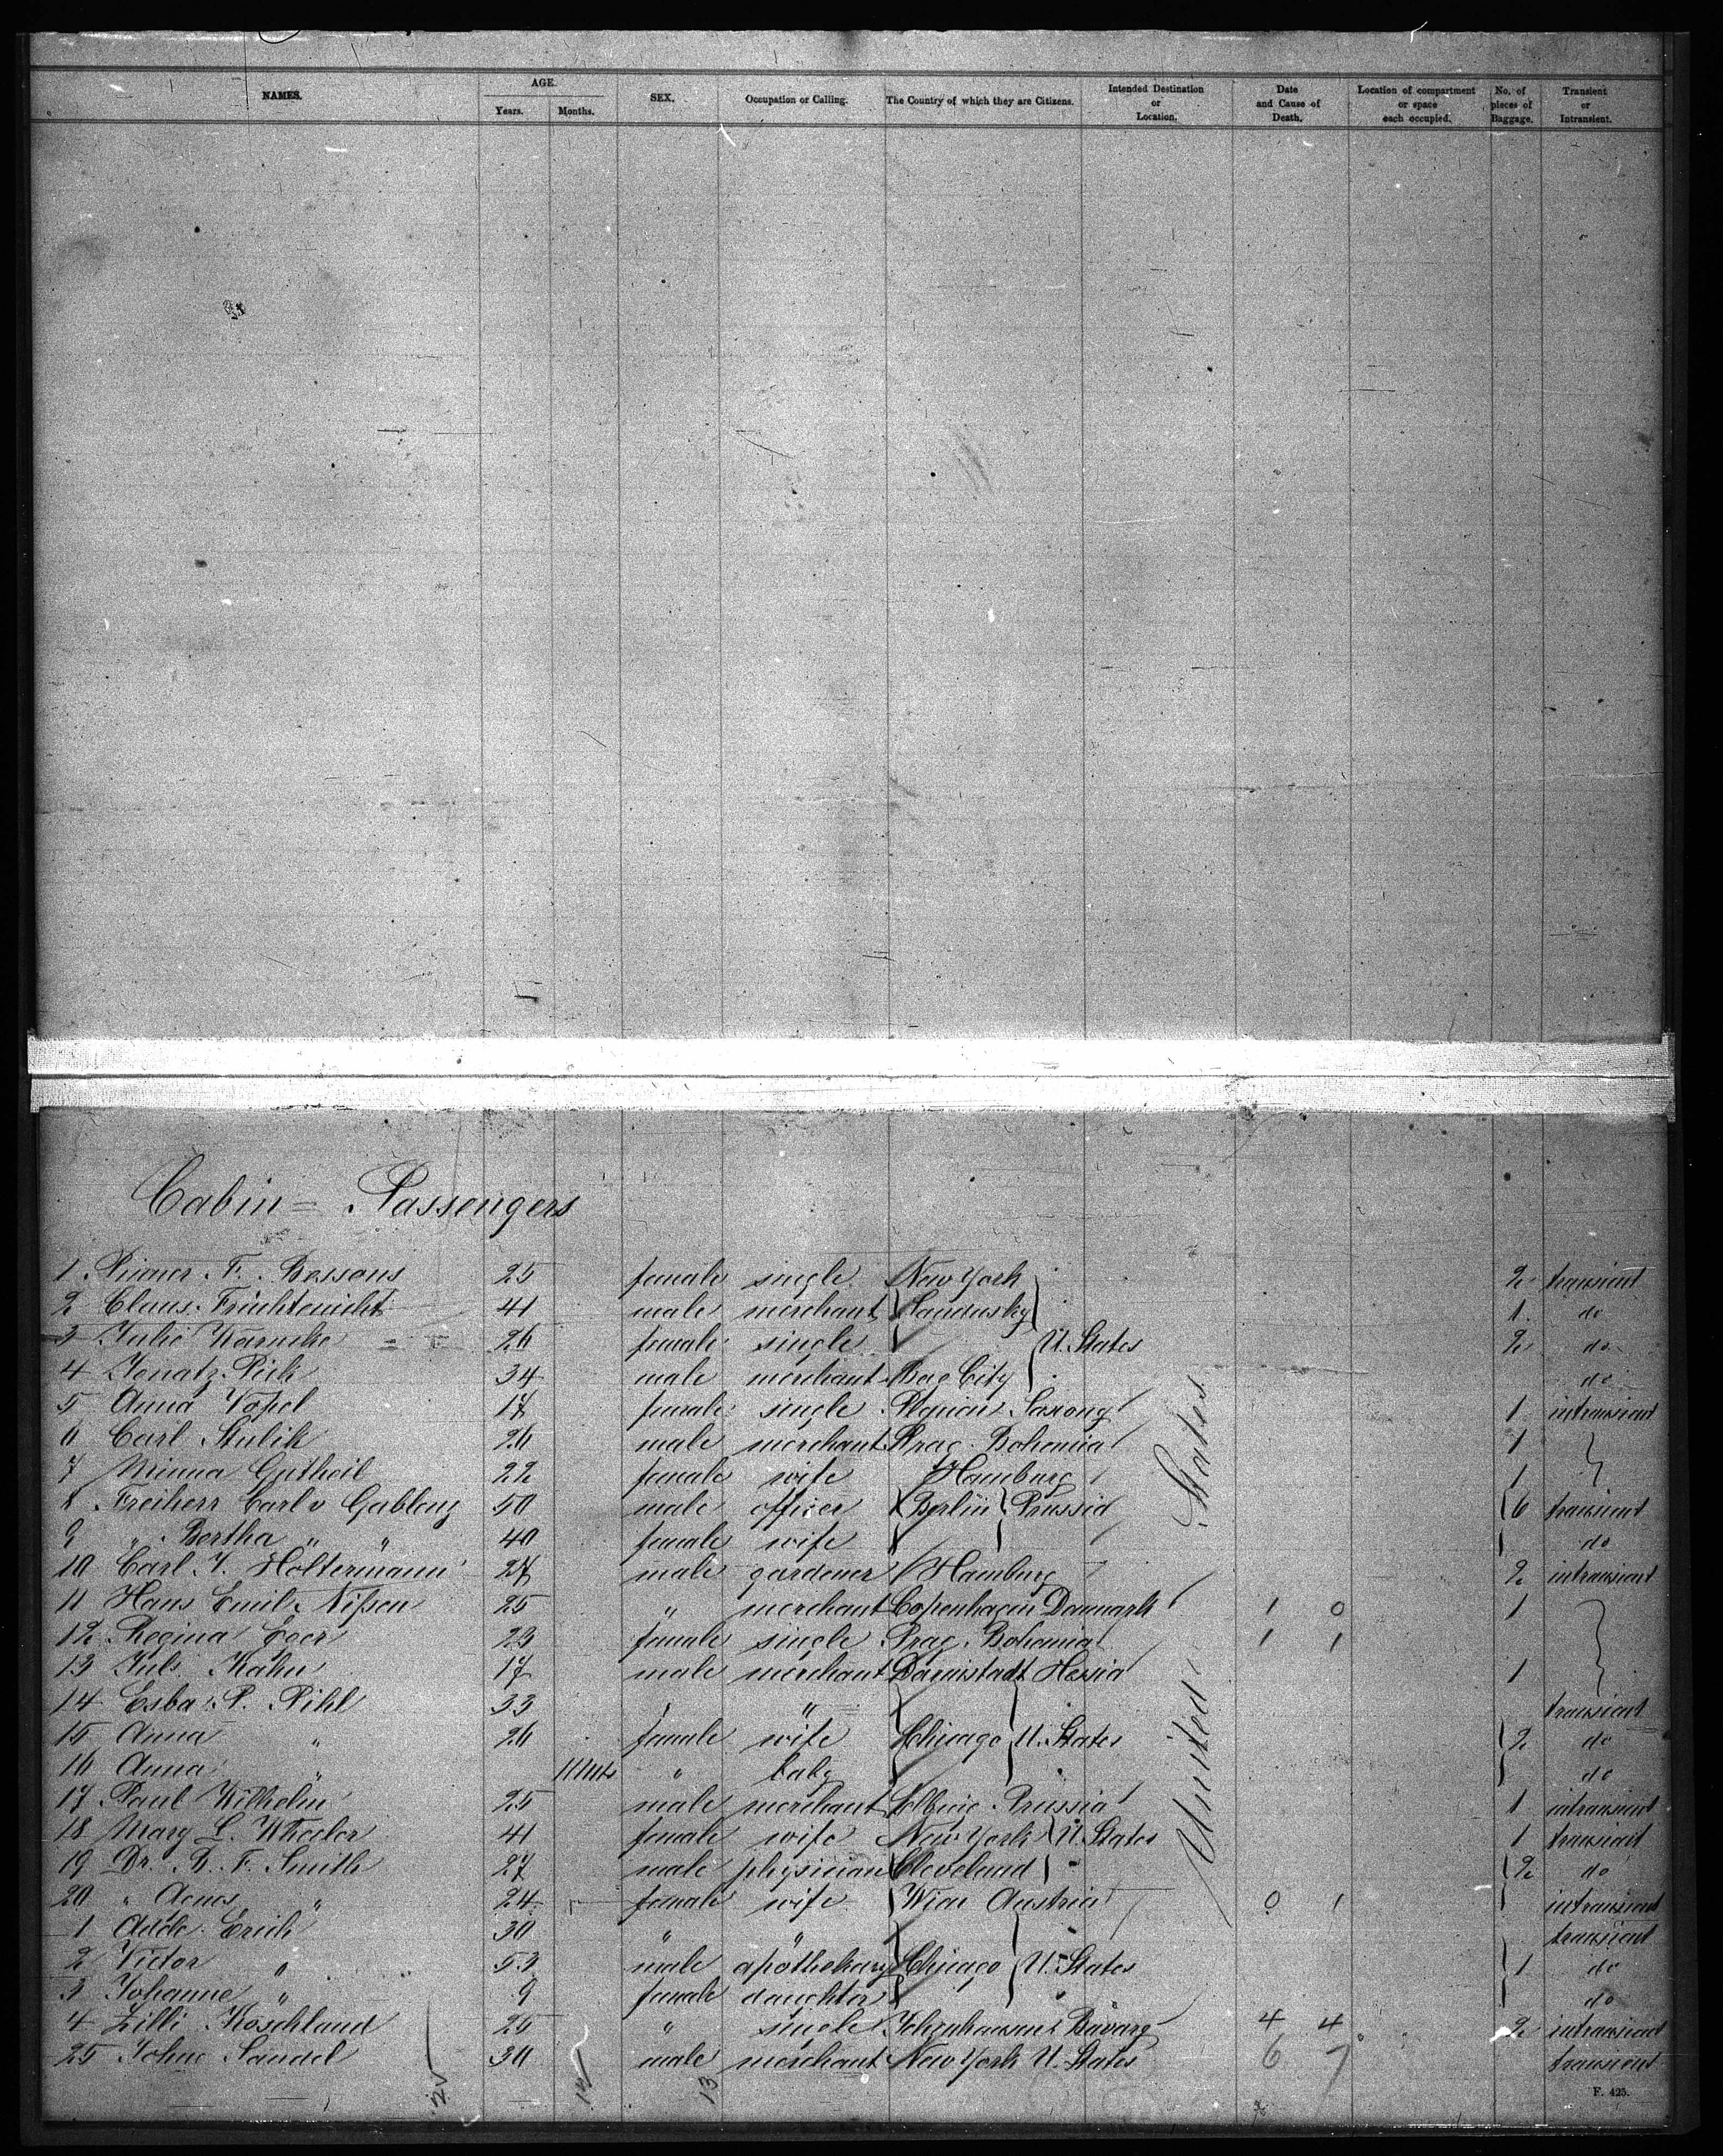 NAMES. AGE. SEX. Occupation or Calling. The Country of which they are Citizens. Intended Destination or Location. Date and Cause of Death. Location of compartment or space each occupied. No. of pieces of Baggage. Transient or Intransient.
Years. Months.
Cabin = Passengers
1 F. Bessons 25 female single New York 2 transient
2 Claus Früchtenicht 41 male merchant Sandusky 1 do
3 Julie Warncke 26 female single U. States 2 do
4 Ignatz Pick 34 male merchant Bay City do
5 Anna Vopel 17 female single Saxony 1 intransient
6 Carl Stulik 26 male merchant Prag Bohemia 1
7 Minna Gutheil 22 female wife Hamburg 1
8 Freiherr Carl v Gablenz 50 male officer Berlin Prussia 6 transient
9 " Bertha " " 40 female wife do
10 Carl J. Höltermann 27 male gardener Hamburg 2 intransient
11 Hans Emil Nissen 25 " merchant Copenhagen Danmark 1 0 1
12 Regina Eger 23 female single Prag Bohemia 1 1
13 Jul. Kahn 17 male merchant Darmstadt Hessia 1
14 Esba P. Pihl 33 " " transient
15 Anna " 26 female wife Chicago U. States 2 do
16 Anna " 11 Mts " baby do
17 Paul Wilhelm 25 male merchant Prussia 1 intransient
18 Mary L. Wheeler 41 female wife New York U. States 1 transient
19 Dr. B. F. Smith 27 male physician Cleveland 2 do
20 " Agnes " 24 female wife Wien Austria 0 1 intransient
1 Adele Erich 30 " " transient
2 Victor " 53 male apothekary Chicago U. States 1 do
3 Johanne " 9 female daughter do
4 Zilli Koschland 25 " single Ichenhausen Bavaria 4 4 2 intransient
25 John Sandel 30 male merchant New York U. States 6 7 transient
United States
12 13
F. 425.